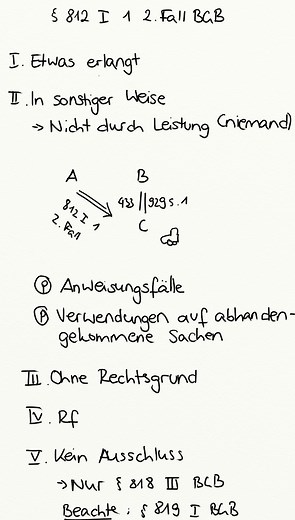 § 812 I 1 2. Fall BGB
I. Etwas erlangt
II. In sonstiger Weise
→ Nicht durch Leistung (niemand)
A B
812 I 1 433 || 929 S. 1
2. Fall C
Ⓟ Anweisungsfälle
Ⓟ Verwendungen auf abhanden-
gekommene Sachen
III. Ohne Rechtsgrund
IV. Rf
V. Kein Ausschluss
→ Nur § 818 III BGB
Beachte: § 819 I BGB